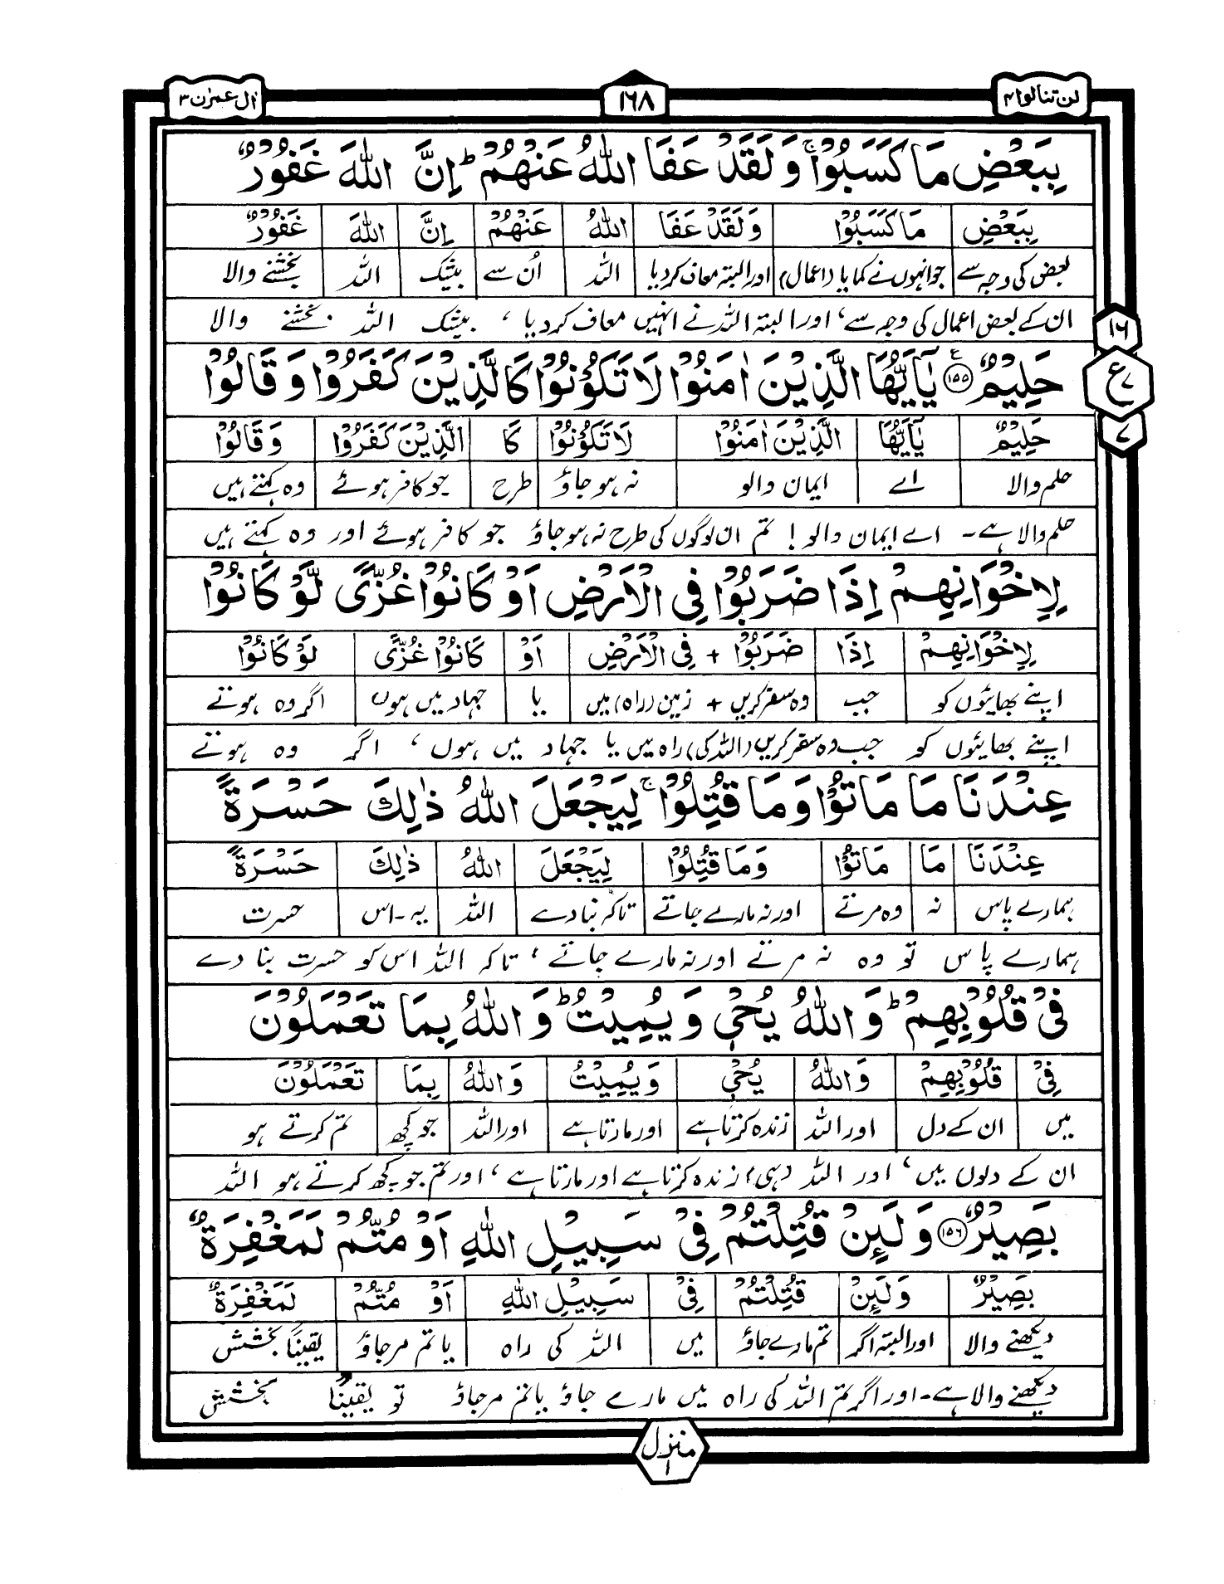 لن تنالوا ۴
۱۶۸
اٰل عمرٰن ۳
بِبَعْضِ مَا كَسَبُوْا ۚ وَلَقَدْ عَفَا اللّٰهُ عَنْهُمْ ؕ اِنَّ اللّٰهَ غَفُوْرٌ
بِبَعْضِ مَا كَسَبُوْا وَلَقَدْ عَفَا اللّٰهُ عَنْهُمْ اِنَّ اللّٰهَ غَفُوْرٌ
بعض کی وجہ سے جو انہوں نے کمایا (اعمال) اور البتہ معاف کردیا اللہ اُن سے بیشک اللہ بخشنے والا
ان کے بعض اعمال کی وجہ سے، اور البتہ اللہ نے انہیں معاف کردیا، بیشک اللہ بخشنے والا
۱۶
حَلِيْمٌ ﴿۱۵۵﴾ يٰۤاَيُّهَا الَّذِيْنَ اٰمَنُوْا لَا تَكُوْنُوْا كَالَّذِيْنَ كَفَرُوْا وَقَالُوْا
ع ۷
حَلِيْمٌ يٰۤاَيُّهَا الَّذِيْنَ اٰمَنُوْا لَا تَكُوْنُوْا كَا الَّذِيْنَ كَفَرُوْا وَقَالُوْا
۷
حلم والا اے ایمان والو نہ ہو جاؤ طرح جو کافر ہوئے وہ کہتے ہیں
حلم والا ہے۔ اے ایمان والو! تم ان لوگوں کی طرح نہ ہو جاؤ جو کافر ہوئے اور وہ کہتے ہیں
لِاِخْوَانِهِمْ اِذَا ضَرَبُوْا فِي الْاَرْضِ اَوْ كَانُوْا غُزًّى لَّوْ كَانُوْا
لِاِخْوَانِهِمْ اِذَا ضَرَبُوْا + فِي الْاَرْضِ اَوْ كَانُوْا غُزًّى لَوْ كَانُوْا
اپنے بھائیوں کو جب وہ سفر کریں + زمین (راہ) میں یا جہاد میں ہوں اگر وہ ہوتے
اپنے بھائیوں کو جب وہ سفر کریں (اللہ کی) راہ میں یا جہاد میں ہوں، اگر وہ ہوتے
عِنْدَنَا مَا مَاتُوْا وَمَا قُتِلُوْا ۚ لِيَجْعَلَ اللّٰهُ ذٰلِكَ حَسْرَةً
عِنْدَنَا مَا مَاتُوْا وَمَا قُتِلُوْا لِيَجْعَلَ اللّٰهُ ذٰلِكَ حَسْرَةً
ہمارے پاس نہ وہ مرتے اور نہ مارے جاتے تاکہ بنادے اللہ یہ۔اس حسرت
ہمارے پاس تو وہ نہ مرتے اور نہ مارے جاتے، تاکہ اللہ اس کو حسرت بنا دے
فِيْ قُلُوْبِهِمْ ؕ وَاللّٰهُ يُحْيٖ وَيُمِيْتُ ؕ وَاللّٰهُ بِمَا تَعْمَلُوْنَ
فِيْ قُلُوْبِهِمْ وَاللّٰهُ يُحْيٖ وَيُمِيْتُ وَاللّٰهُ بِمَا تَعْمَلُوْنَ
میں ان کے دل اور اللہ زندہ کرتا ہے اور مارتا ہے اور اللہ جو کچھ تم کرتے ہو
ان کے دلوں میں، اور اللہ (ہی) زندہ کرتا ہے اور مارتا ہے، اور تم جو کچھ کرتے ہو اللہ
بَصِيْرٌ ﴿۱۵۶﴾ وَلَئِنْ قُتِلْتُمْ فِيْ سَبِيْلِ اللّٰهِ اَوْ مُتُّمْ لَمَغْفِرَةٌ
بَصِيْرٌ وَلَئِنْ قُتِلْتُمْ فِيْ سَبِيْلِ اللّٰهِ اَوْ مُتُّمْ لَمَغْفِرَةٌ
دیکھنے والا اور البتہ اگر تم مارے جاؤ میں اللہ کی راہ یا تم مرجاؤ یقیناً بخشش
دیکھنے والا ہے۔ اور اگر تم اللہ کی راہ میں مارے جاؤ یا تم مرجاؤ تو یقیناً بخشش
منزل ۱